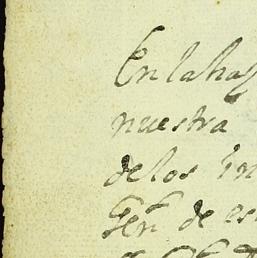 En la ha
nuestra
de los in
Gen de es